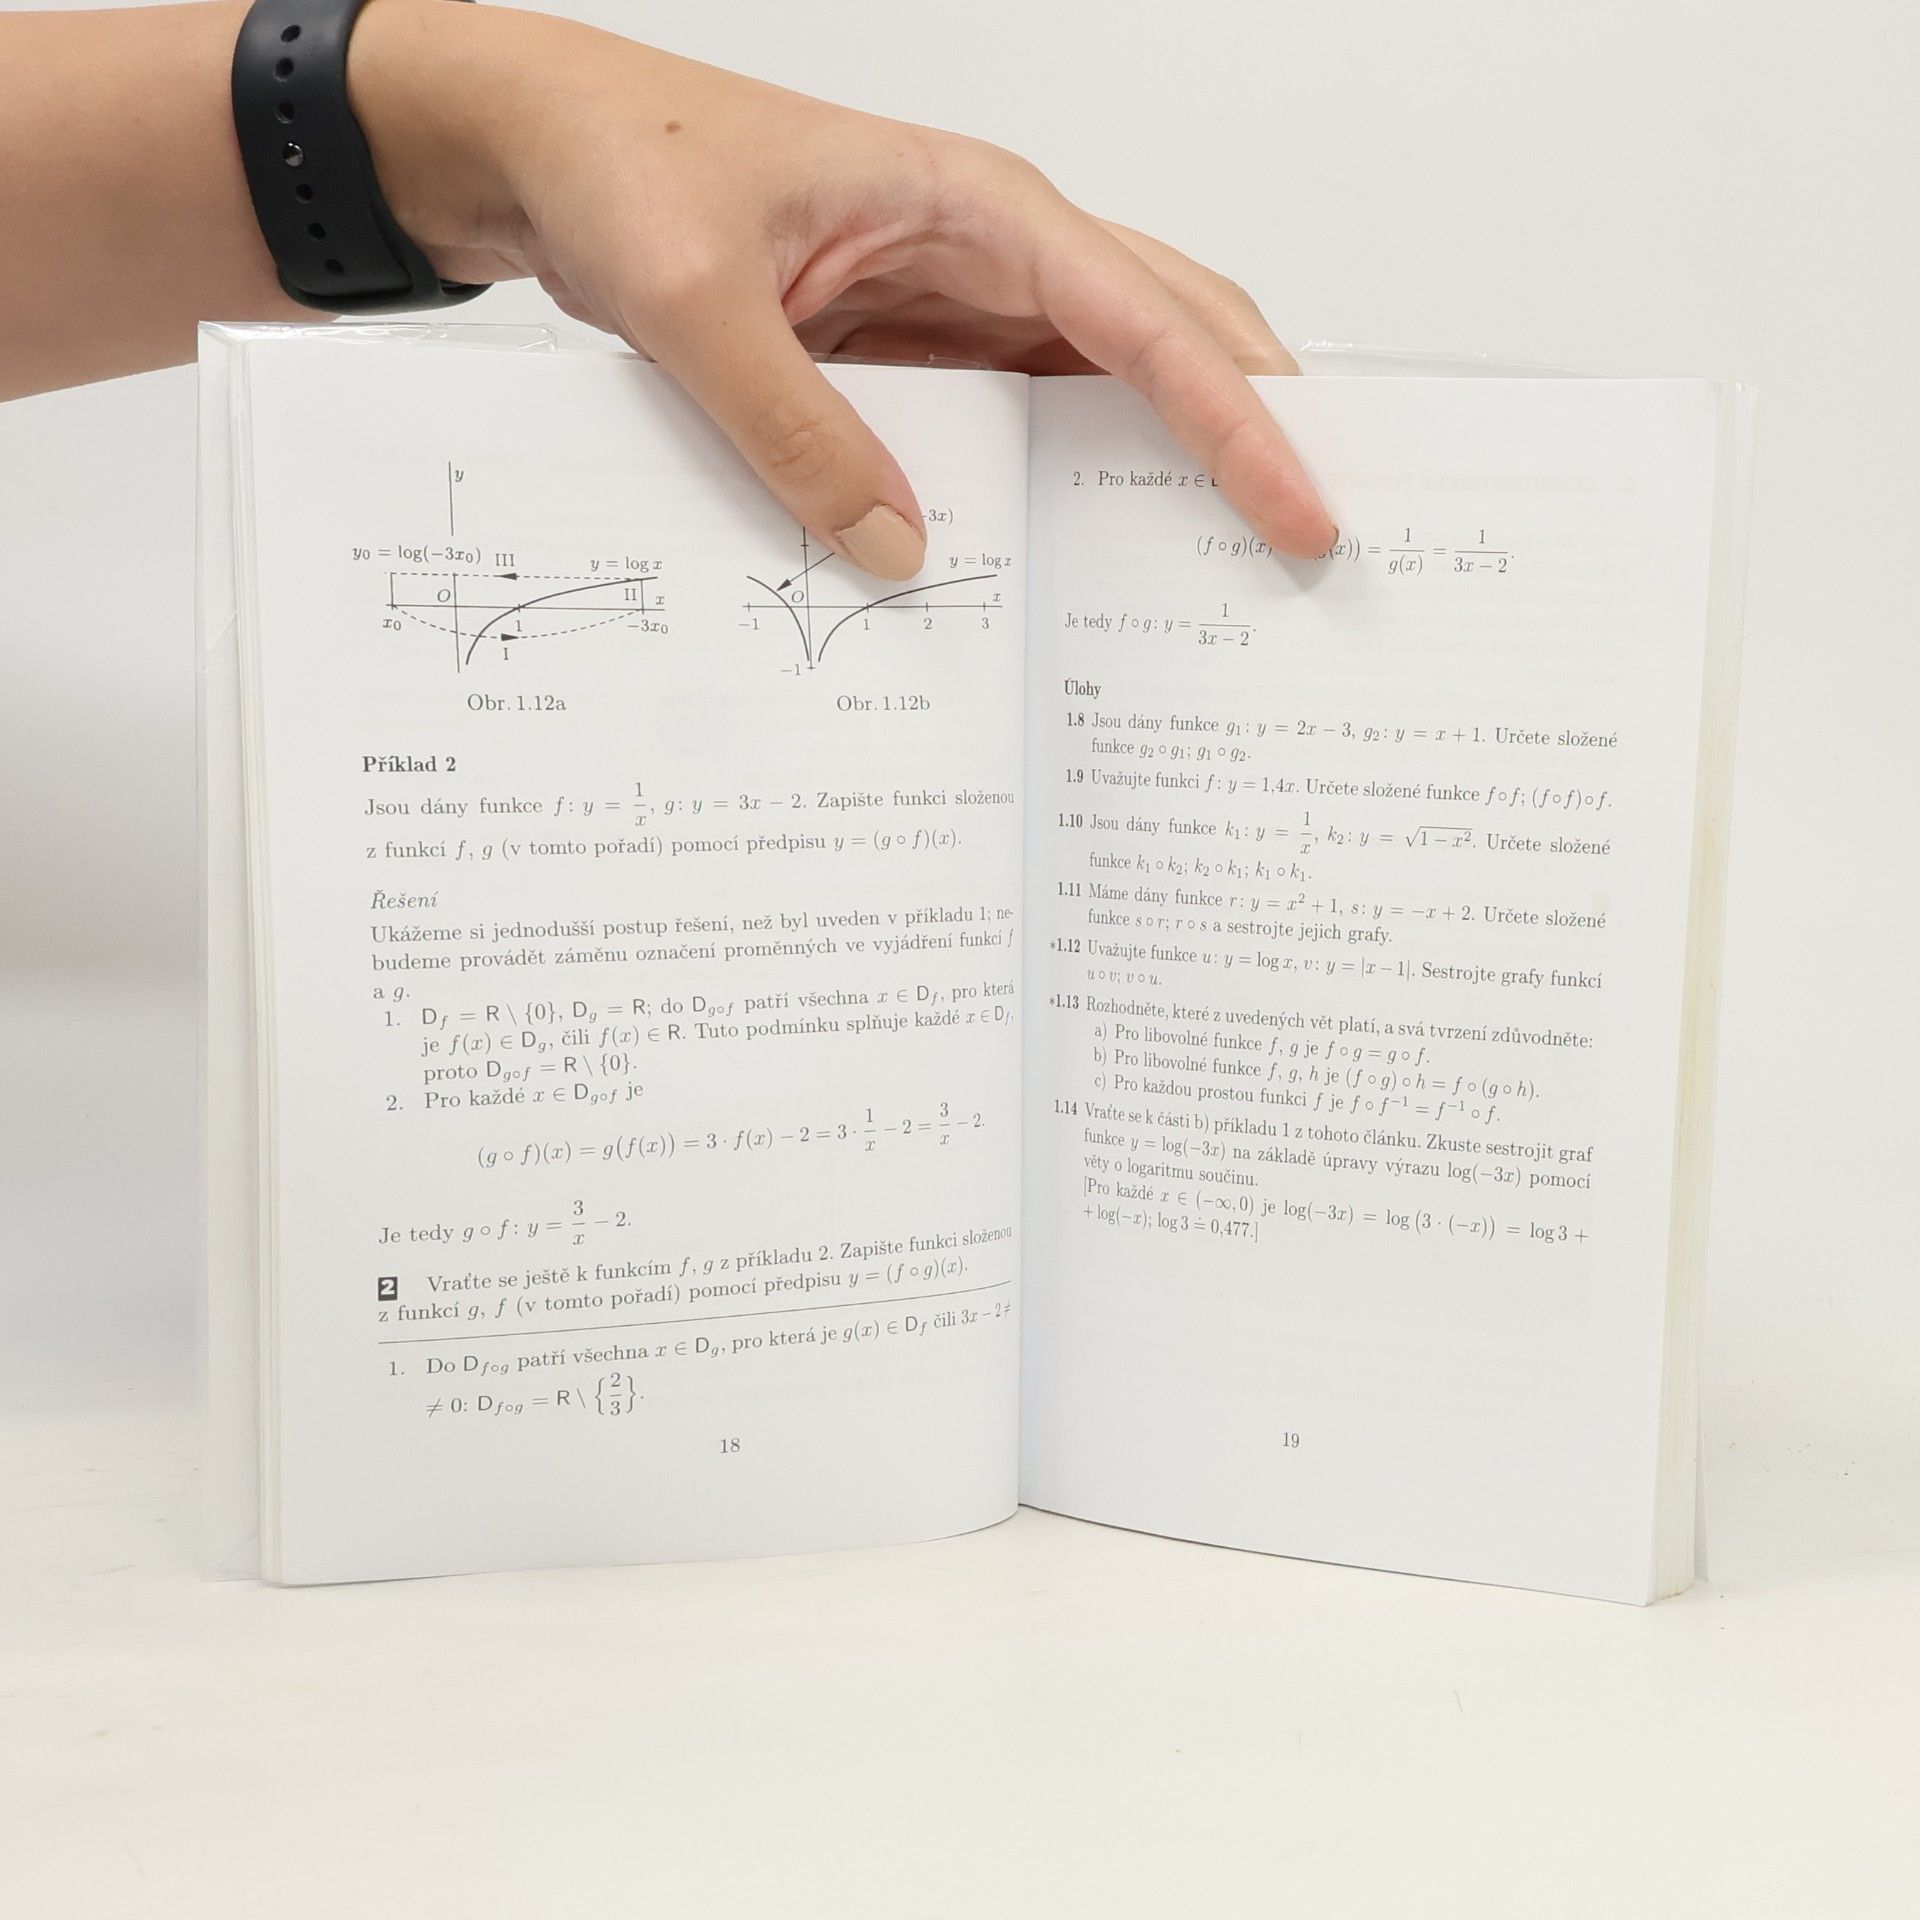 y
y₀ = log(−3x₀) III y = log x
O II x
x₀ 1 −3x₀
I
Obr. 1.12a
−3x)
y = log x
O x
−1 1 2 3
−1
Obr. 1.12b
Příklad 2
Jsou dány funkce f: y = 1/x, g: y = 3x − 2. Zapište funkci složenou
z funkcí f, g (v tomto pořadí) pomocí předpisu y = (g ∘ f)(x).
Řešení
Ukážeme si jednodušší postup řešení, než byl uveden v příkladu 1; ne-
budeme provádět záměnu označení proměnných ve vyjádření funkcí f
a g.
1. D_f = R \ {0}, D_g = R; do D_{g∘f} patří všechna x ∈ D_f, pro která
je f(x) ∈ D_g, čili f(x) ∈ R. Tuto podmínku splňuje každé x ∈ D_f,
proto D_{g∘f} = R \ {0}.
2. Pro každé x ∈ D_{g∘f} je
(g ∘ f)(x) = g(f(x)) = 3 · f(x) − 2 = 3 · 1/x − 2 = 3/x − 2.
Je tedy g ∘ f: y = 3/x − 2.
2 Vraťte se ještě k funkcím f, g z příkladu 2. Zapište funkci složenou
z funkcí g, f (v tomto pořadí) pomocí předpisu y = (f ∘ g)(x).
1. Do D_{f∘g} patří všechna x ∈ D_g, pro která je g(x) ∈ D_f čili 3x − 2 ≠
≠ 0: D_{f∘g} = R \ {2/3}.
18
2. Pro každé x ∈
(f ∘ g)(x) (x)) = 1/g(x) = 1/(3x − 2).
Je tedy f ∘ g: y = 1/(3x − 2).
Úlohy
1.8 Jsou dány funkce g₁: y = 2x − 3, g₂: y = x + 1. Určete složené
funkce g₂ ∘ g₁; g₁ ∘ g₂.
1.9 Uvažujte funkci f: y = 1,4x. Určete složené funkce f∘f; (f∘f)∘f.
1.10 Jsou dány funkce k₁: y = 1/x, k₂: y = √(1 − x²). Určete složené
funkce k₁ ∘ k₂; k₂ ∘ k₁; k₁ ∘ k₁.
1.11 Máme dány funkce r: y = x² + 1, s: y = −x + 2. Určete složené
funkce s ∘ r; r ∘ s a sestrojte jejich grafy.
*1.12 Uvažujte funkce u: y = log x, v: y = |x − 1|. Sestrojte grafy funkcí
u ∘ v; v ∘ u.
*1.13 Rozhodněte, které z uvedených vět platí, a svá tvrzení zdůvodněte:
a) Pro libovolné funkce f, g je f ∘ g = g ∘ f.
b) Pro libovolné funkce f, g, h je (f ∘ g) ∘ h = f ∘ (g ∘ h).
c) Pro každou prostou funkci f je f ∘ f⁻¹ = f⁻¹ ∘ f.
1.14 Vraťte se k části b) příkladu 1 z tohoto článku. Zkuste sestrojit graf
funkce y = log(−3x) na základě úpravy výrazu log(−3x) pomocí
věty o logaritmu součinu.
[Pro každé x ∈ (−∞, 0) je log(−3x) = log (3 · (−x)) = log 3 +
+ log(−x); log 3 ≐ 0,477.]
19